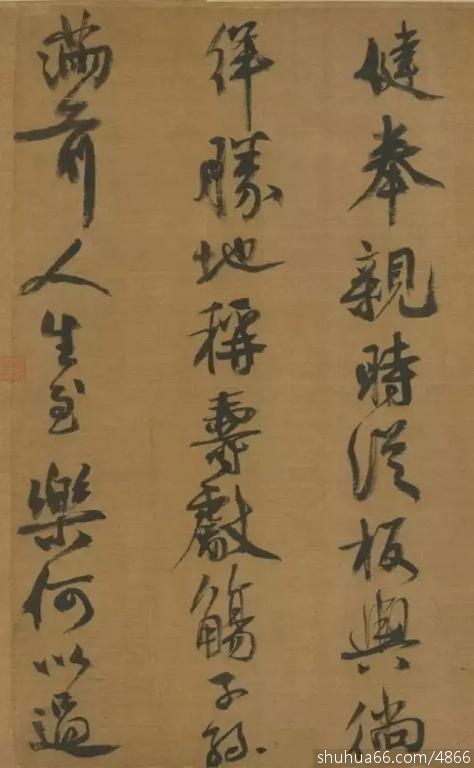 健奉親時從板輿徜
徉勝地稱壽獻觴子孫
滿前人生至樂何以過
shuhua66.com/4866